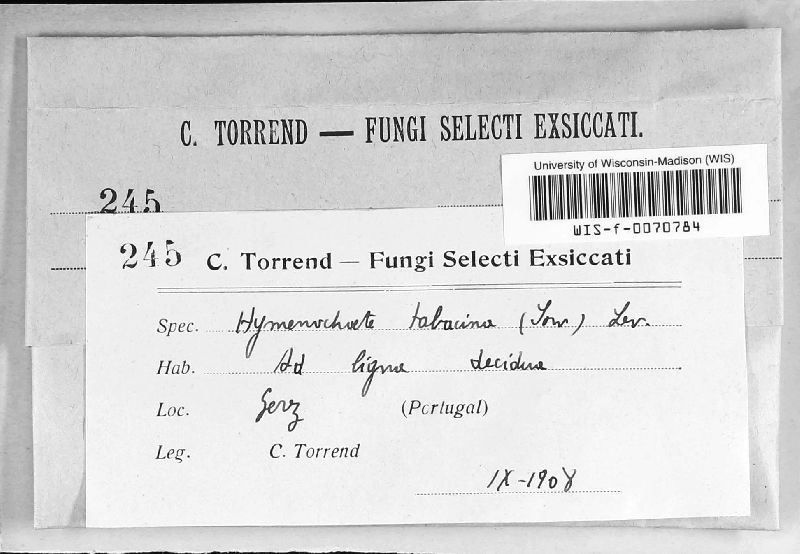 C. TORREND — FUNGI SELECTI EXSICCATI.
University of Wisconsin-Madison (WIS)
WIS-f-0070784
245
245 C. Torrend — Fungi Selecti Exsiccati
Spec. Hymenochaete tabacina (Sow.) Lev.
Hab. Ad ligna decidua
Loc. Gerez (Portugal)
Leg. C. Torrend
IX-1908